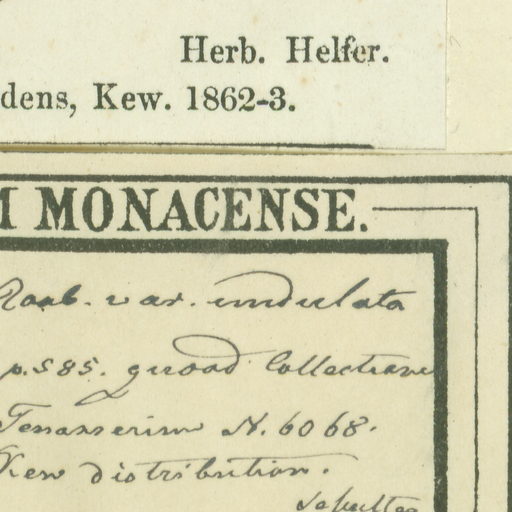 Herb. Helfer.
dens, Kew. 1862-3.
M MONACENSE.
Roxb. var. undulata
p. 585. quoad Collectione
Tenasserim N. 6068.
Kew distribution.